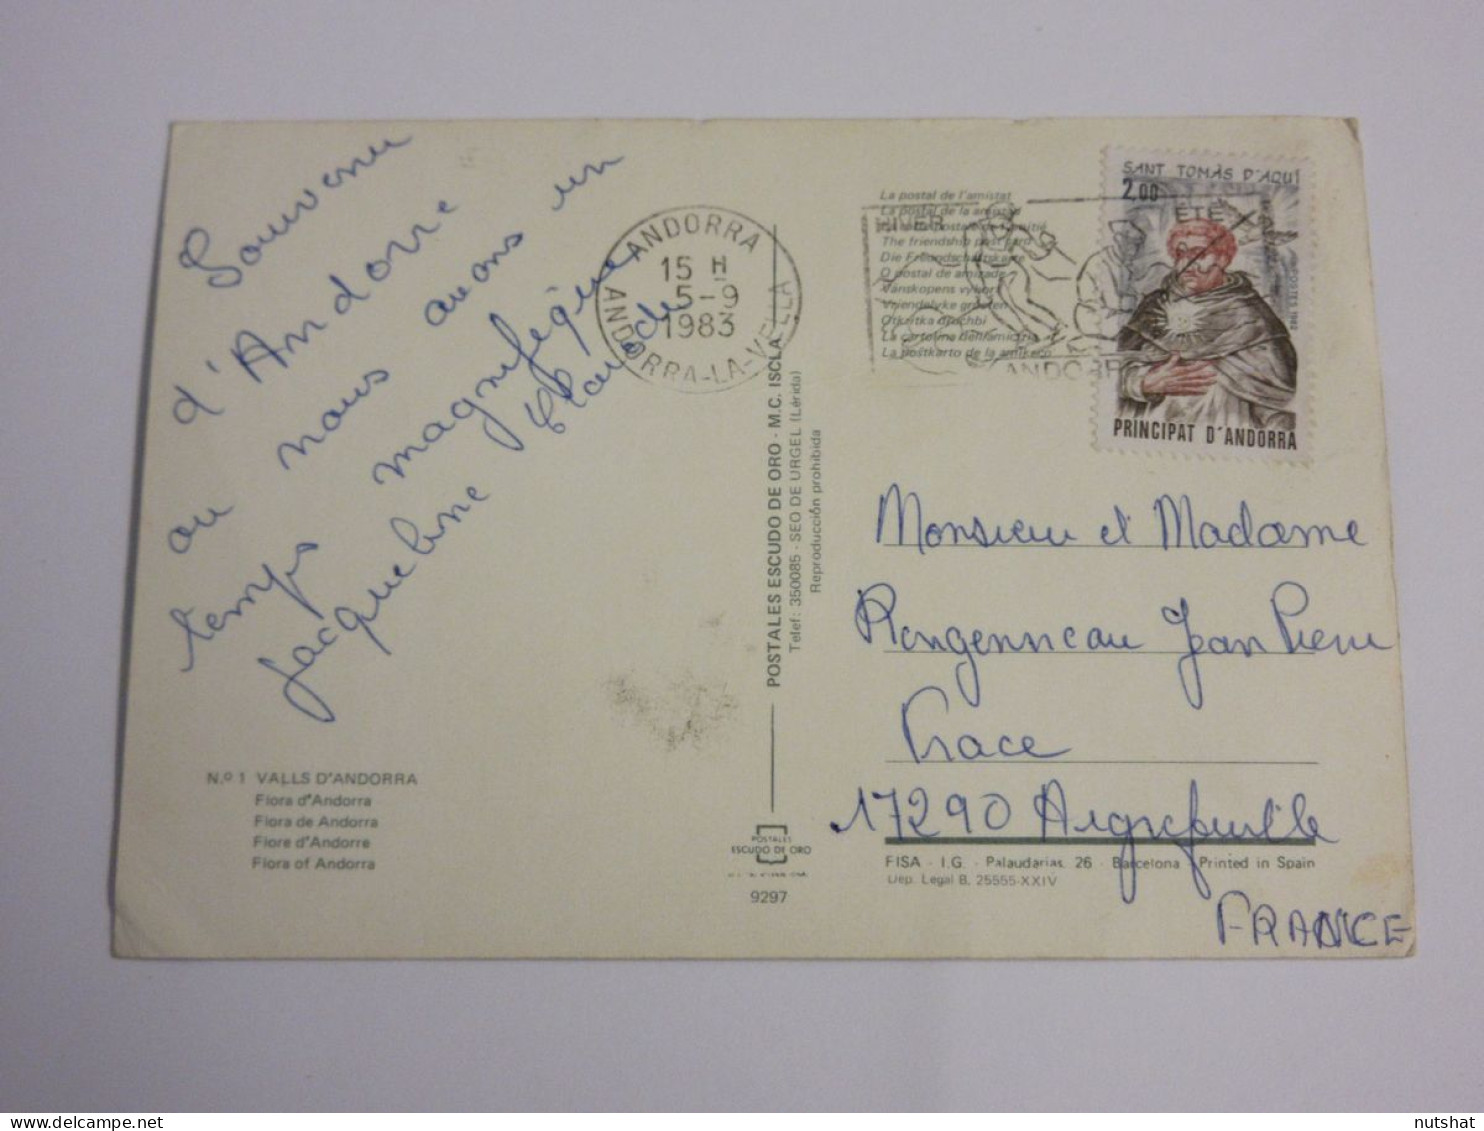 Souvenir
d'Andorre
ou nous avons un
temps magnifique
Jacqueline Claude
N.º 1 VALLS D'ANDORRA
Flora d'Andorra
Flora de Andorra
Flore d'Andorre
Flora of Andorra
ANDORRA
15 H
5-9
1983
ANDORRA-LA-VELLA
POSTALES ESCUDO DE ORO - M.C. ISCLA
Telef: 350085 - SEO DE URGEL (Lérida)
Reproducción prohibida
POSTALES
ESCUDO DE ORO
9297
La postal de l'amistat
La postal de la amistad
The friendship post card
Die Freundschaftskarte
O postal de amizade
La cartolina dell'amicizia
La postkarto de la amikeco
HIVER
ÉTÉ
ANDORR
SANT TOMÀS D'AQUÍ
2,00
POSTES 1982
PRINCIPAT D'ANDORRA
Monsieur et Madame
Rongenneau Jean Pierre
Frace
17290 Aigrefeuille
FISA - I.G. - Palaudarias, 26 - Barcelona - Printed in Spain
Dep. Legal B. 25555-XXIV
FRANCE
nutshat